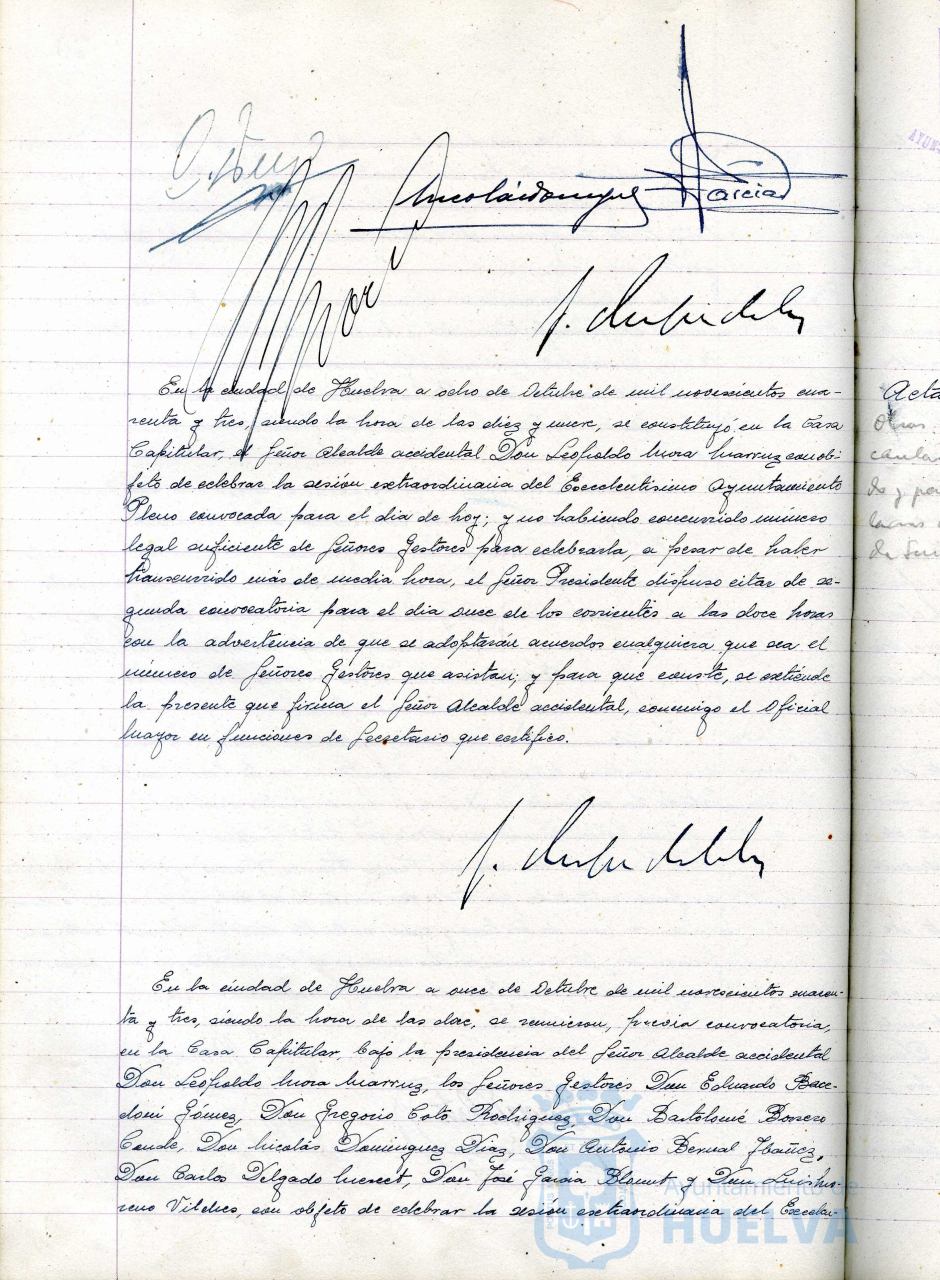 Nicolás Domínguez
García
En la ciudad de Huelva a ocho de Octubre de mil novecientos cua-
renta y tres, siendo la hora de las diez y nueve, se constituyó en la Casa
Capitular, el Señor Alcalde accidental Don Leopoldo Mora Marruz con ob-
jeto de celebrar la sesión extraordinaria del Excelentísimo Ayuntamiento
Pleno convocada para el dia de hoy; y no habiendo concurrido número
legal suficiente de Señores Gestores para celebrarla, a pesar de haber
transcurrido más de media hora, el Señor Presidente dispuso citar de se-
gunda convocatoria para el dia once de los corrientes a las doce horas
con la advertencia de que se adoptarán acuerdos cualquiera que sea el
número de Señores Gestores que asistan; y para que conste, se extiende
la presente que firma el Señor Alcalde accidental, conmigo el Oficial
Mayor en funciones de Secretario que certifico.
En la ciudad de Huelva a once de Octubre de mil novecientos cuaren-
ta y tres, siendo la hora de las doce, se reunieron, previa convocatoria,
en la Casa Capitular, bajo la presidencia del Señor Alcalde accidental
Don Leopoldo Mora Marruz, los Señores Gestores Don Eduardo Bac-
doni Gómez, Don Gregorio Coto Rodriguez, Don Bartolomé Borrero
Conde, Don Nicolás Dominguez Diaz, Don Antonio Bernal Ibañez,
Don Carlos Delgado, Don José Garcia Blount y Don Luis Mo-
reno Vilches, con objeto de celebrar la sesión extraordinaria del Excelen-
Acta
Otras
Ayuntamiento de
HUELVA